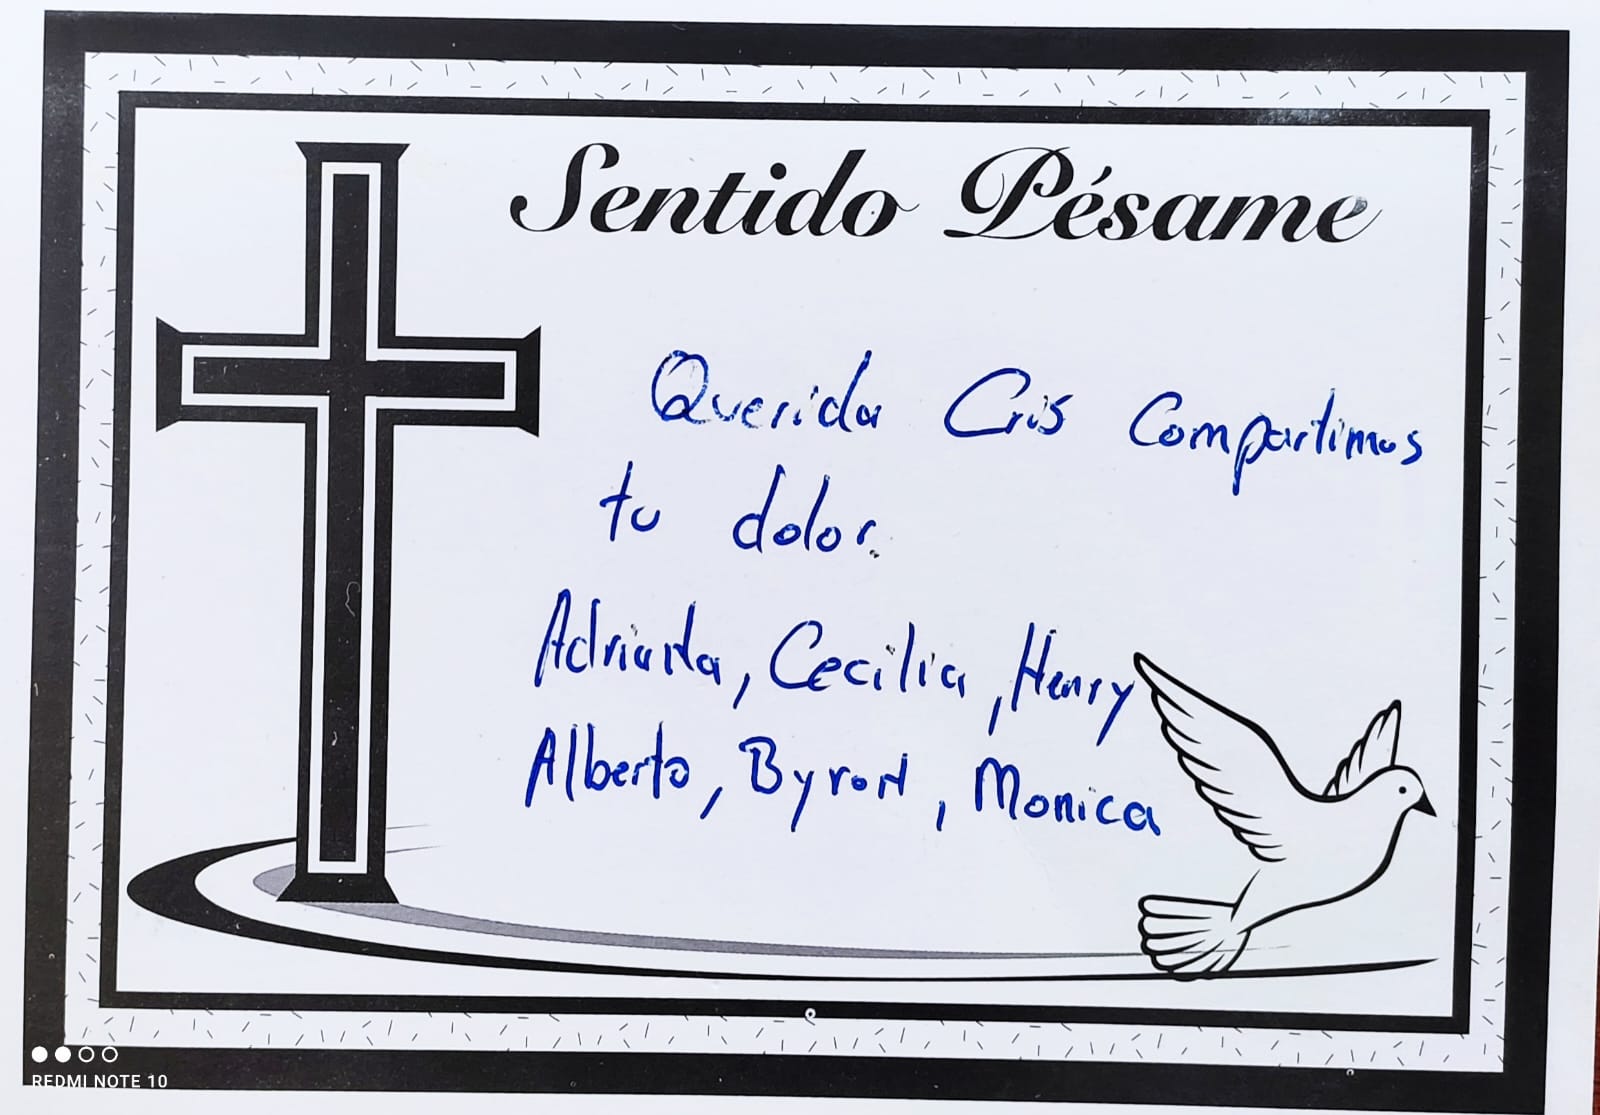 Sentido Pésame
Querida Cris Compartimos
tu dolor.
Adriana, Cecilia, Henry
Alberto, Byron, Monica
REDMI NOTE 10